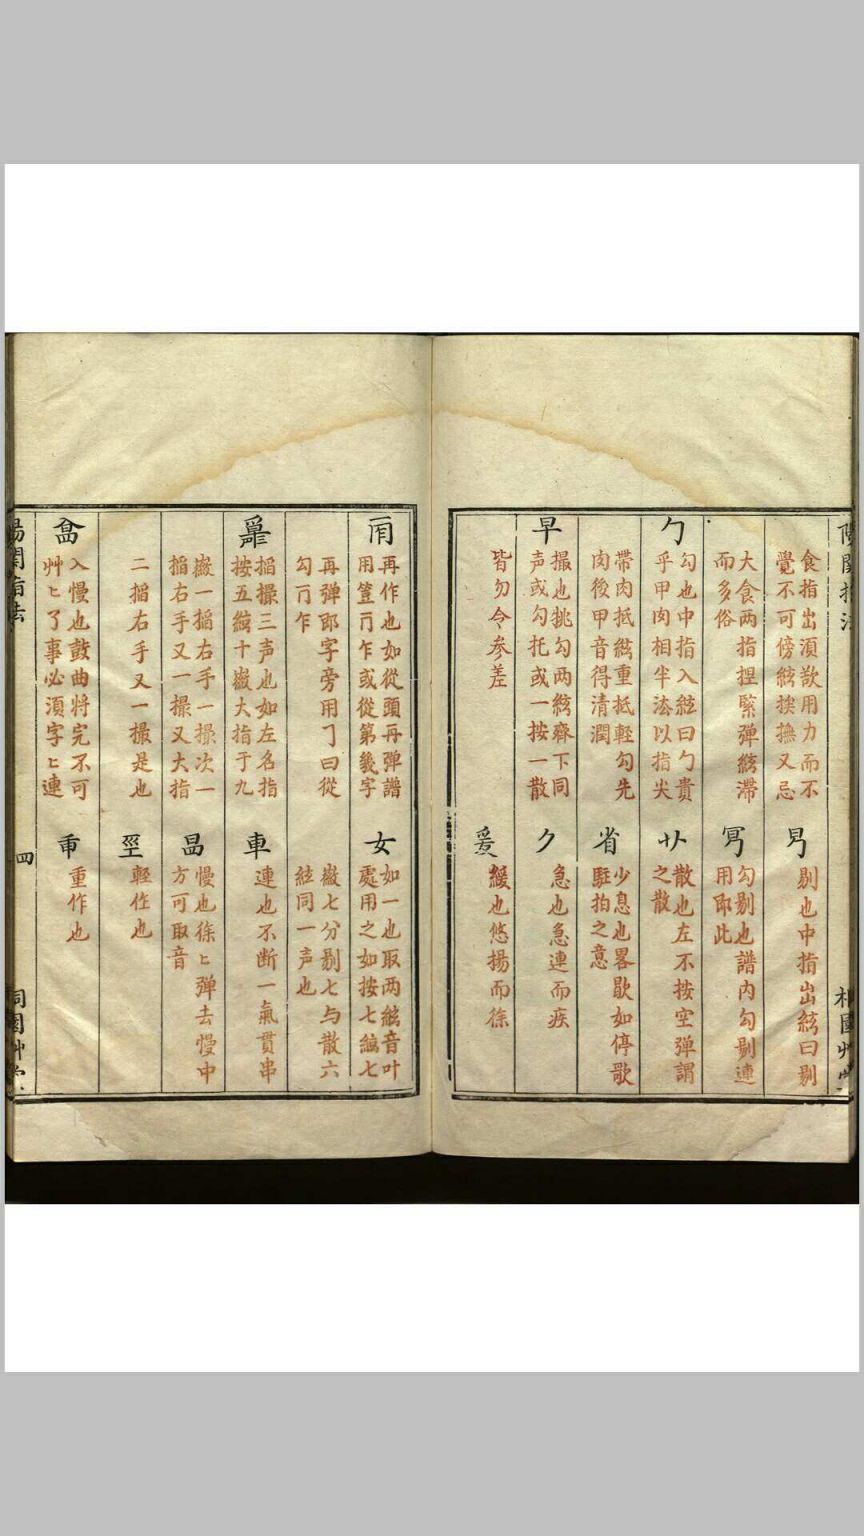 食指出湏歃用力而不
覺不可傍絃挨撫又忌
大食两指捏緊彈絃滯
而多俗
勹
勾也中指入絃曰勹貴
乎甲肉相半法以指尖
帶肉抵絃重抵輕勾先
肉後甲音得清潤
早
撮也挑勾两絃齊下同
声或勾托或一按一散
皆勿令參差
剔也中指出絃曰剔
勾剔也譜内勾剔連
用即此
散也左不按空彈謂
之散
省
少息也畧歇如停歌
駐拍之意
ク
急也急連而疾
緩也悠揚而徐
再作也如從頭再彈譜
用䇺㔿乍或從第幾字
再彈即字旁用㇆曰從
勾㔿乍
搯撮三声也如左名指
按五絃十徽大指于九
徽一搯右手一撮次一
搯右手又一撮又大指
二搯右手又一撮是也
入慢也鼓曲将完不可
艸匕了事必湏字匕連
女
如一也取两絃音叶
處用之如按七絃七
徽七分剔七与散六
絃同一声也
車
連也不断一氣貫串
昌
慢也徐匕彈去慢中
方可取音
輕作也
重作也
四